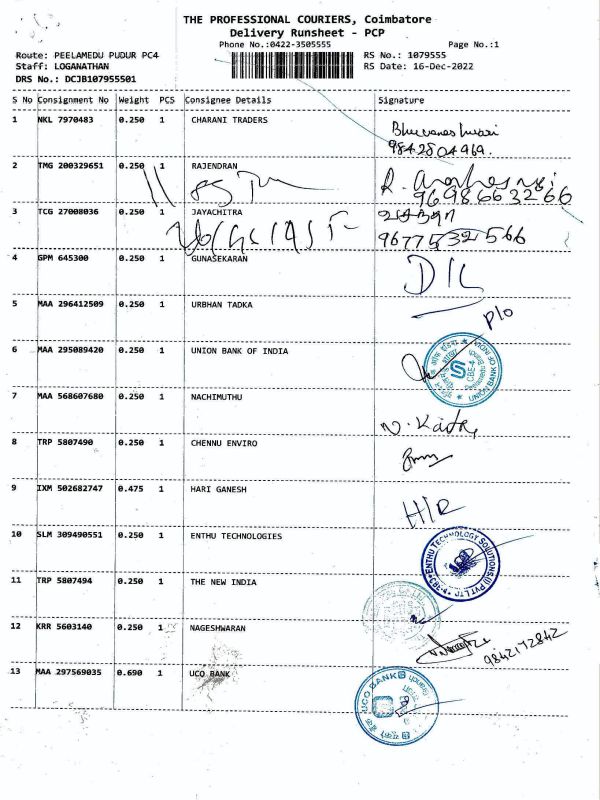 THE PROFESSIONAL COURIERS, Coimbatore
Delivery Runsheet - PCP
Phone No.:0422-3505555 Page No.:1
Route: PEELAMEDU PUDUR PC4 RS No.: 1079555
Staff: LOGANATHAN RS Date: 16-Dec-2022
DRS No.: DCJB107955501
S No Consignment No Weight PCS Consignee Details Signature
1 NKL 7970483 0.250 1 CHARANI TRADERS
Bhuvaneshwari
9842804969.
2 TMG 200329651 0.250 1 RAJENDRAN
9698663266
3 TCG 27008036 0.250 1 JAYACHITRA
9677532566
4 GPM 645300 0.250 1 GUNASEKARAN
D/L
5 MAA 296412509 0.250 1 URBHAN TADKA
P/o
6 MAA 295089420 0.250 1 UNION BANK OF INDIA
UNION BANK OF INDIA
7 MAA 568607680 0.250 1 NACHIMUTHU
8 TRP 5807490 0.250 1 CHENNU ENVIRO
9 IXM 502682747 0.475 1 HARI GANESH
H/R
10 SLM 309490551 0.250 1 ENTHU TECHNOLOGIES
ENTHU TECHNOLOGY SOLUTIONS (I) PVT LTD
11 TRP 5807494 0.250 1 THE NEW INDIA
12 KRR 5603140 0.250 1 NAGESHWARAN
9842172842
13 MAA 297569035 0.690 1 UCO BANK
UCO BANK